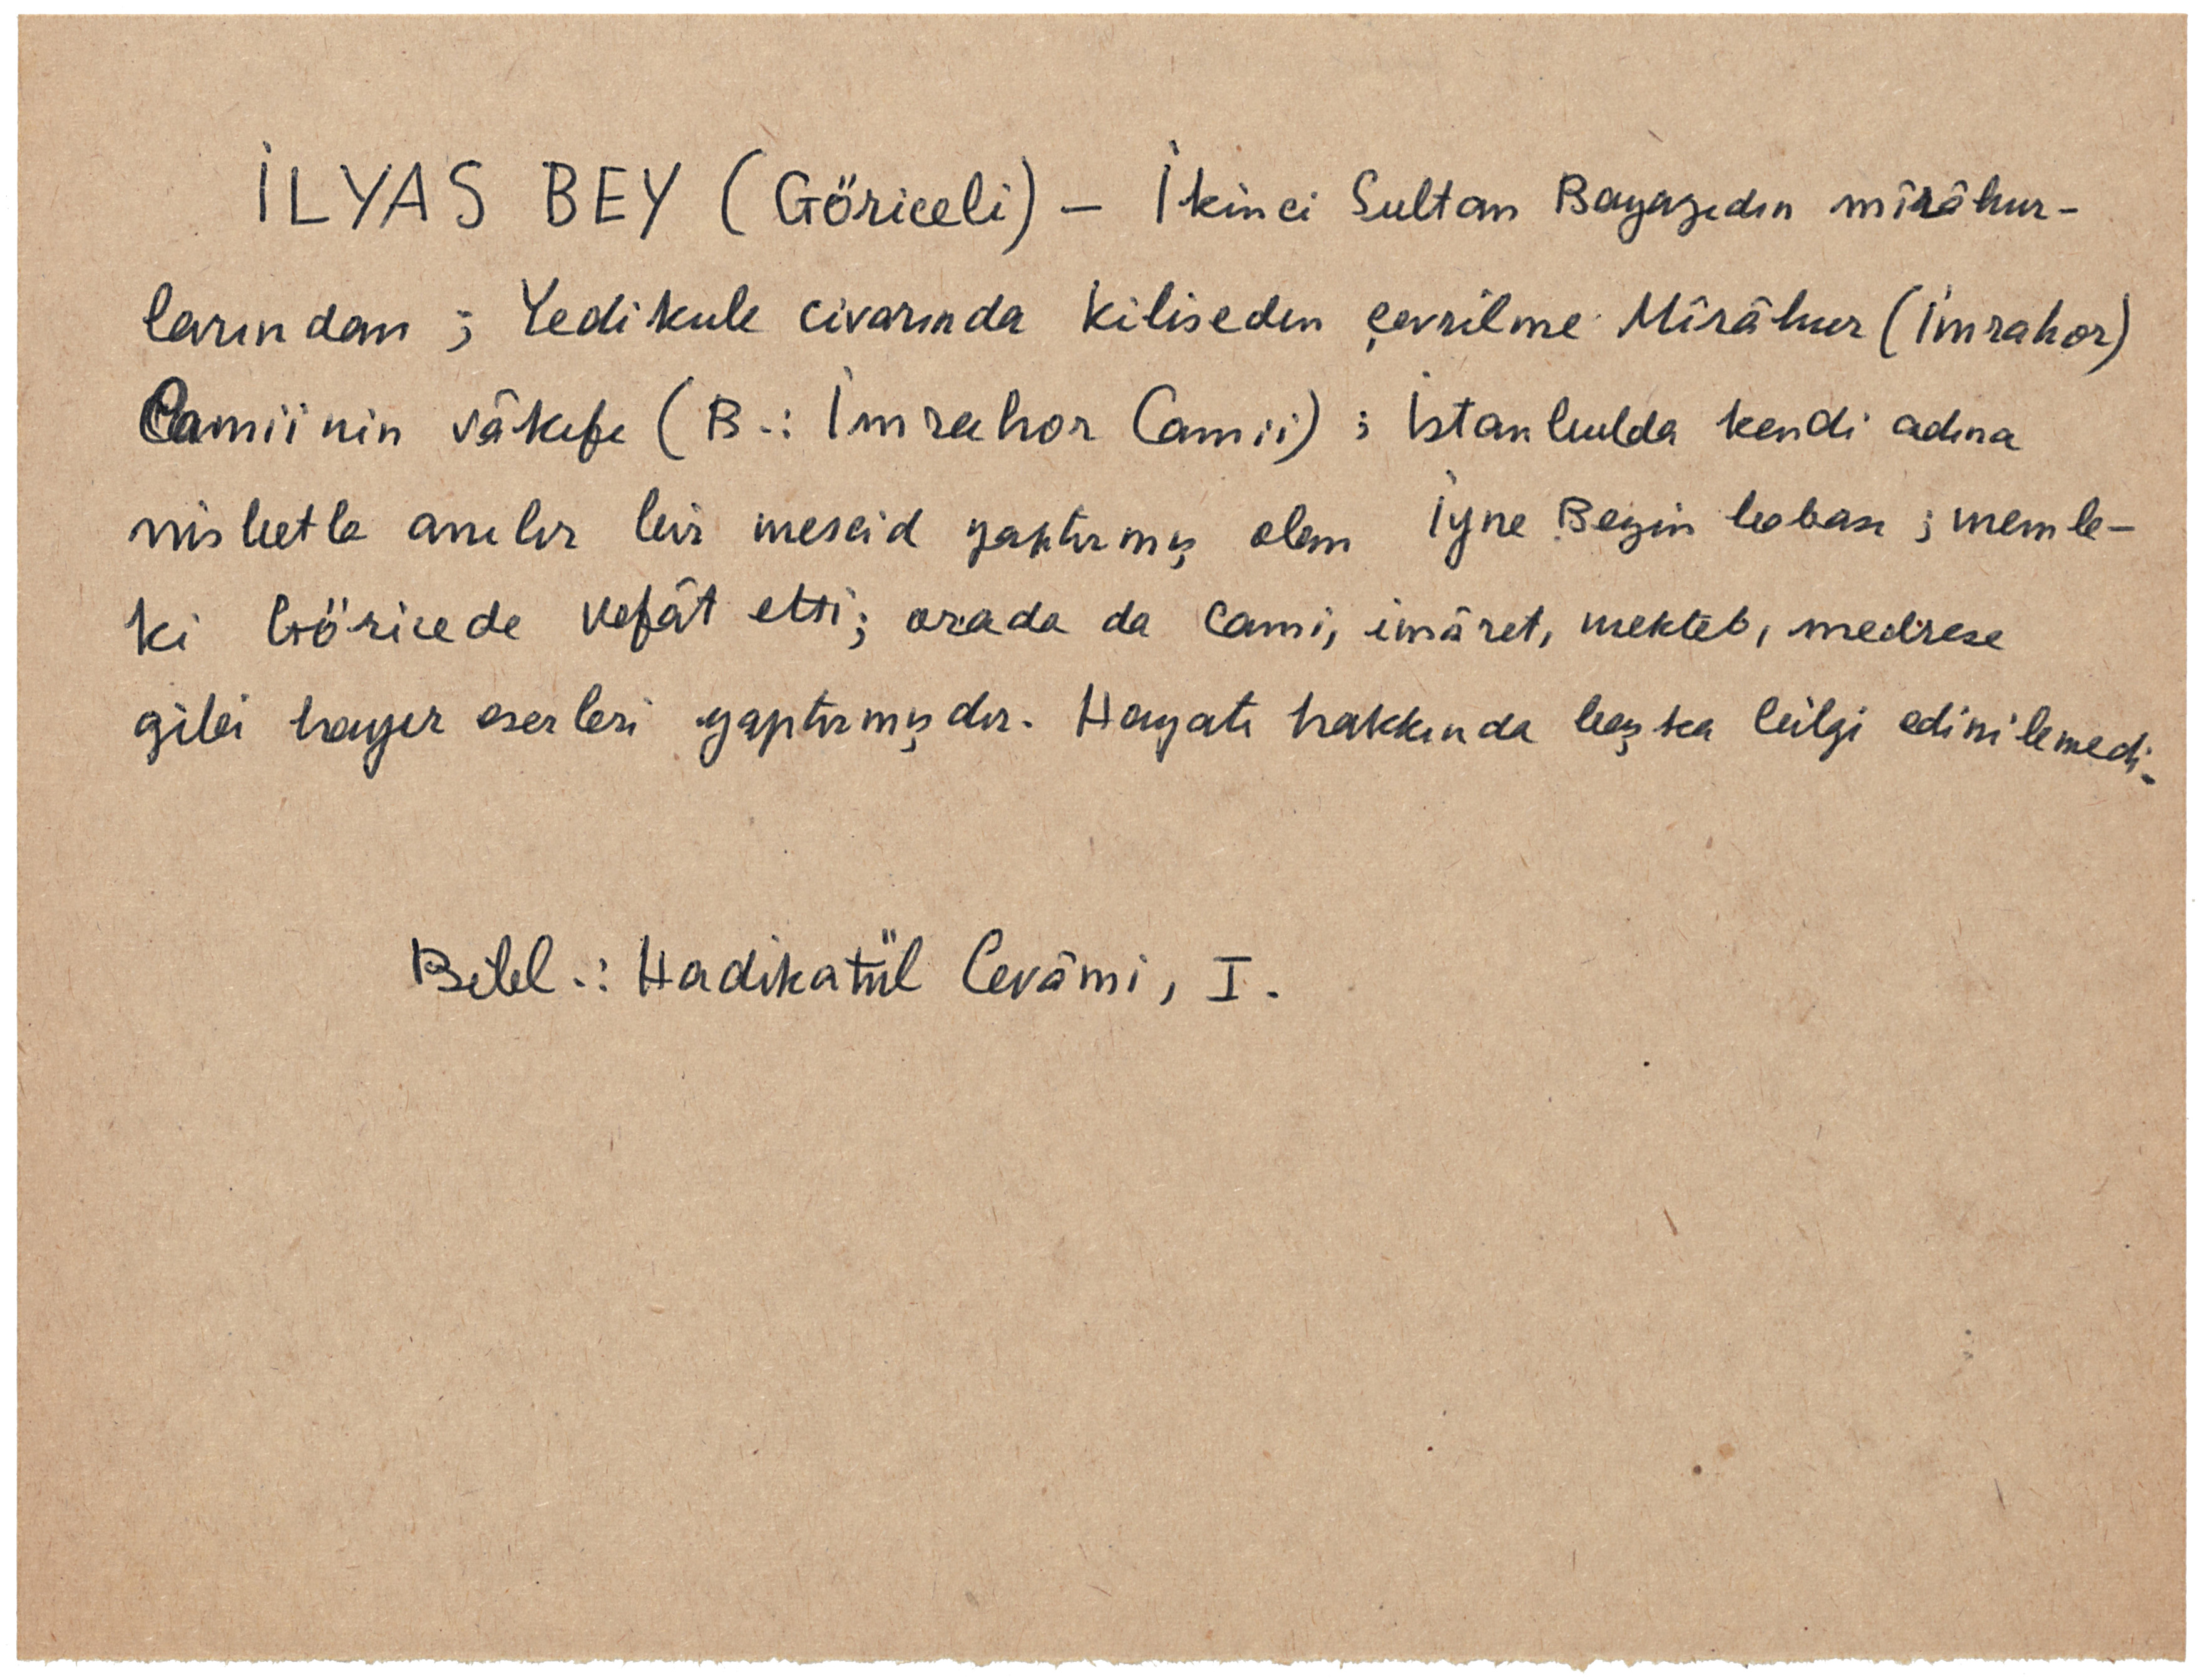 İLYAS BEY (Göriceli) – İkinci Sultan Bayazıdın mîrâhur-
larından ; Yedikule civarında kiliseden çevrilme Mîrâhur (İmrahor)
Camiinin vâkıfı (B.: İmrahor Camii) ; İstanbulda kendi adına
nisbetle anılır bir mescid yaptırmış olan İyne Beyin babası ; memle-
ki Göricede vefât etti; orada da cami, imâret, mekteb, medrese
gibi hayır eserleri yaptırmışdır. Hayatı hakkında başka bilgi edinilemedi.
Bibl.: Hadikatül Cevâmi, I.